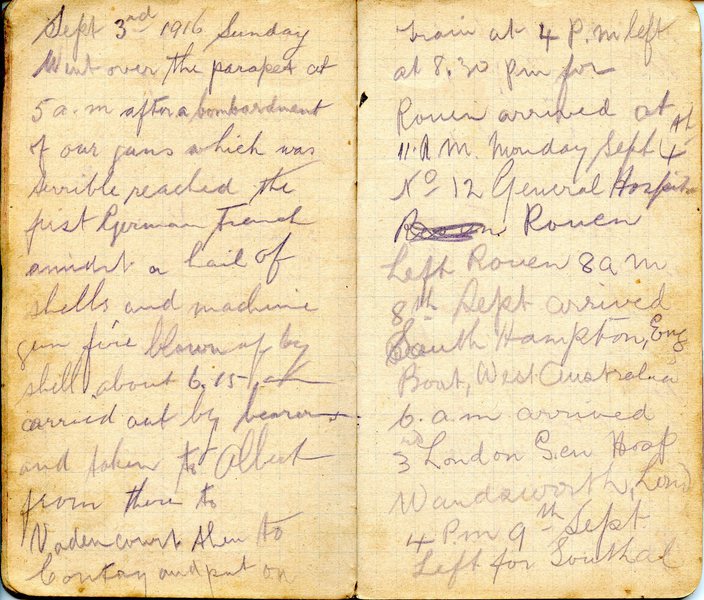 Sept 3rd 1916 Sunday
Went over the parapet at
5 a.m after a bombardment
of our guns which was
terrible reached the
first German trench
amidst a hail of
shells and machine
gun fire blown up by
shell about 6.15 am
carried out by bearers
and taken to Albert
from there to
Vadencourt then to
Contay and put on
train at 4 P.m left
at 8.30 pm for
Rouen arrived at
11. A M. Monday Sept 4th
No 12 General Hospital
Rouen
Left Rouen 8 a m
8th Sept arrived
South Hampton, Eng
Boat, West Australia
6. a.m arrived
3rd London Gen Hosp
Wandsworth, Lond
4 P.m 9th Sept.
Left for Southal